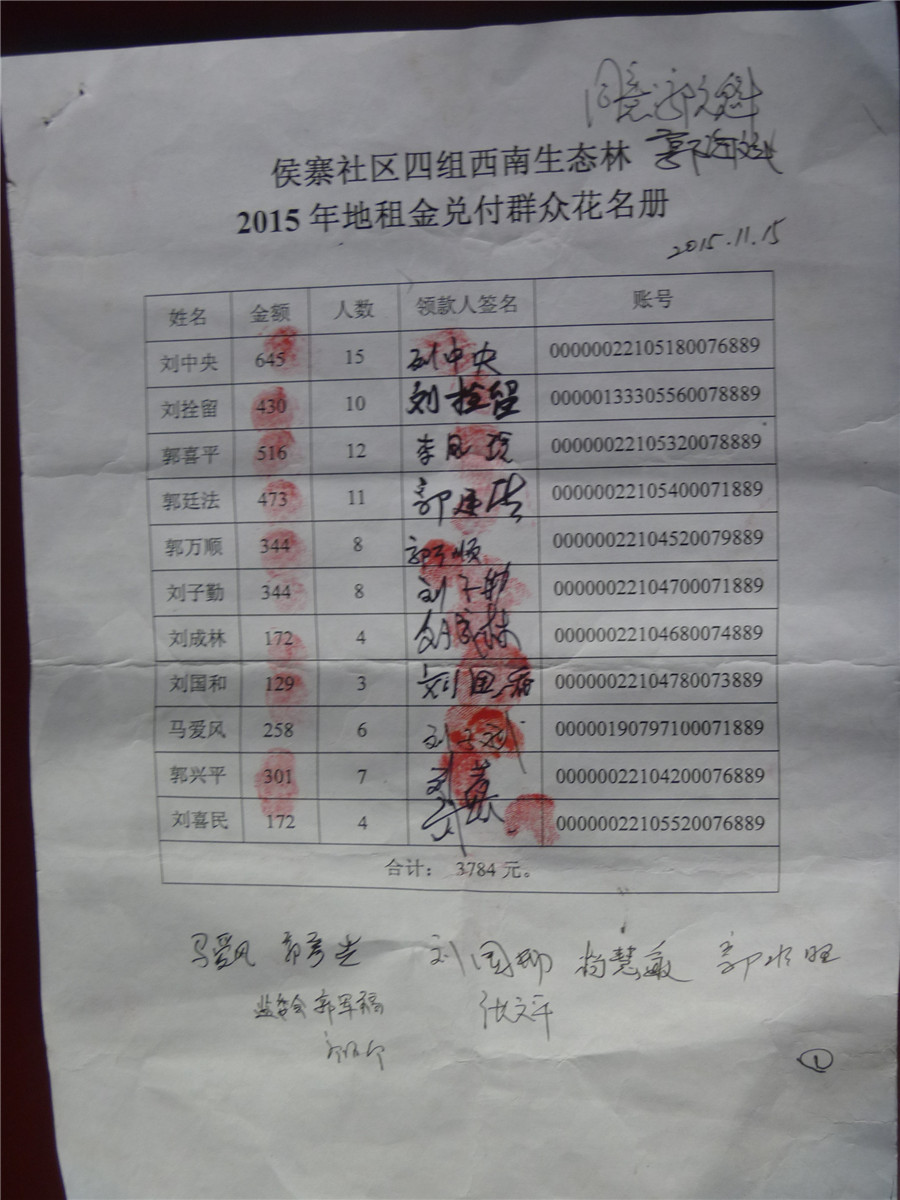 同意 郭文魁
侯寨社区四组西南生态林
2015年地租金兑付群众花名册
2015.11.15
姓名 金额 人数 领款人签名 账号
刘中央 645 15 刘中央 00000022105180076889
刘拴留 430 10 刘拴留 00000133305560078889
郭喜平 516 12 李凤 00000022105320078889
郭廷法 473 11 郭廷法 00000022105400071889
郭万顺 344 8 郭万顺 00000022104520079889
刘子勤 344 8 刘子勤 00000022104700071889
刘成林 172 4 刘成林 00000022104680074889
刘国和 129 3 刘国和 00000022104780073889
马爱风 258 6 刘子 00000190797100071889
郭兴平 301 7 刘 00000022104200076889
刘喜民 172 4 00000022105520076889
合计： 3784元。
马爱风 郭 刘国 杨慧敏 郭水旺
监委会 郭军福 张文平
1